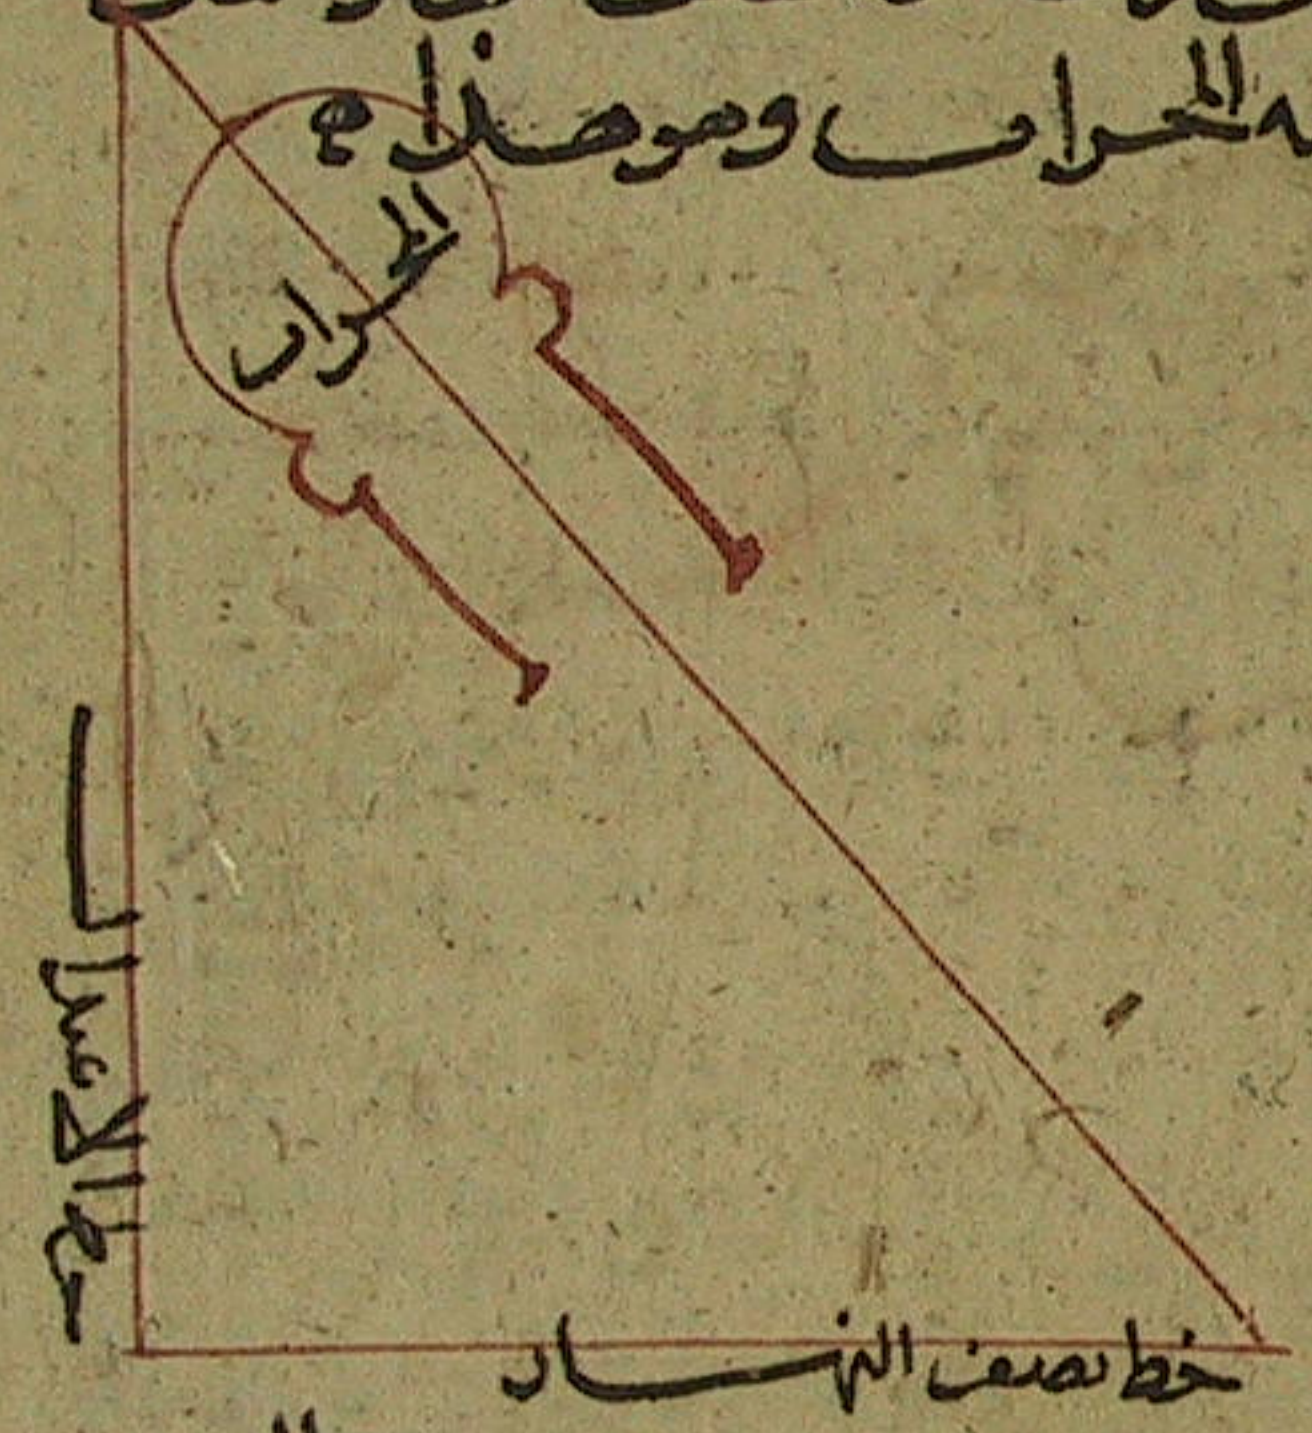 المحراب وهو هذا
المحراب
خط الاعتدال
خط نصف النهار